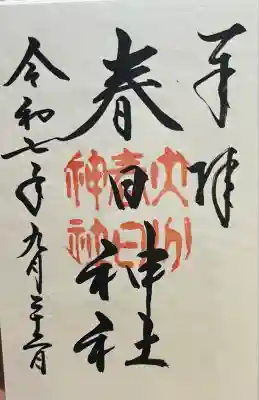 奉拝
春日神社
令和七年九月二十六日
大分
春日
神社